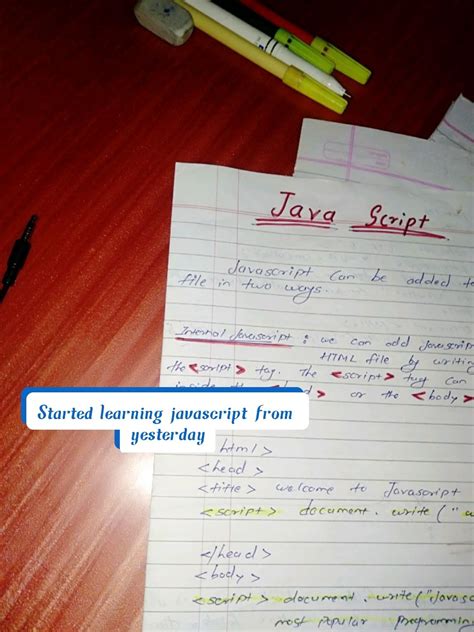 Java Script
Javascript can be added to
file in two ways.
Internal Javascript : we can add Javascript
HTML file by writing
the <script> tag. The <script> tag can
or the <body>
Started learning javascript from
yesterday
html>
<head>
<title> welcome to Javascript
<script> document. write ("
</head>
<body>
<script> document. write("Javasc
most popular programming